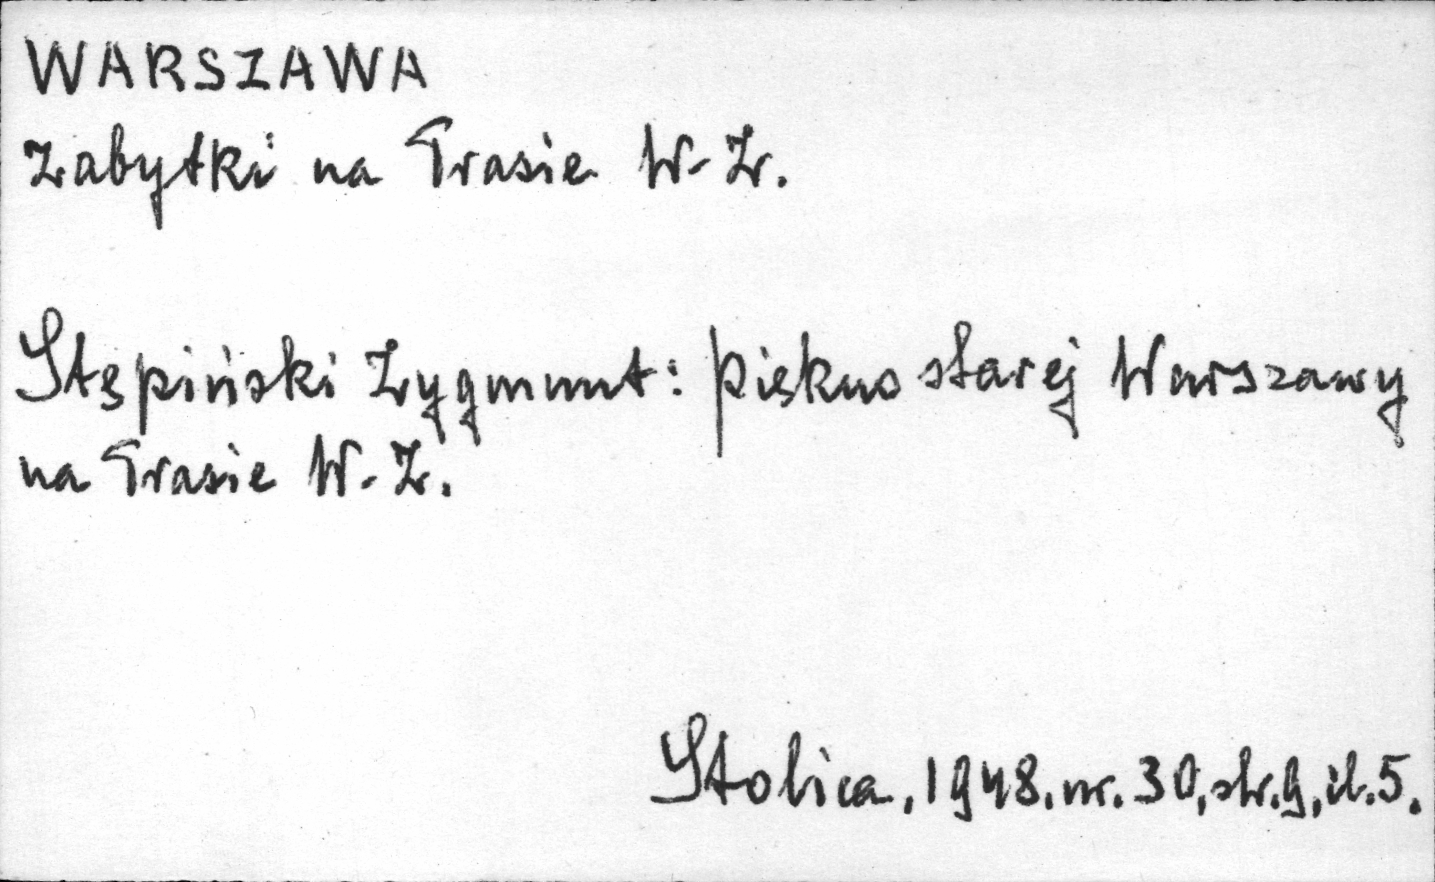 WARSZAWA
Zabytki na Trasie W-Z.
Stępiński Zygmunt: Piękno starej Warszawy
na Trasie W-Z.
Stolica, 1948. nr. 30, str. 9, il. 5.